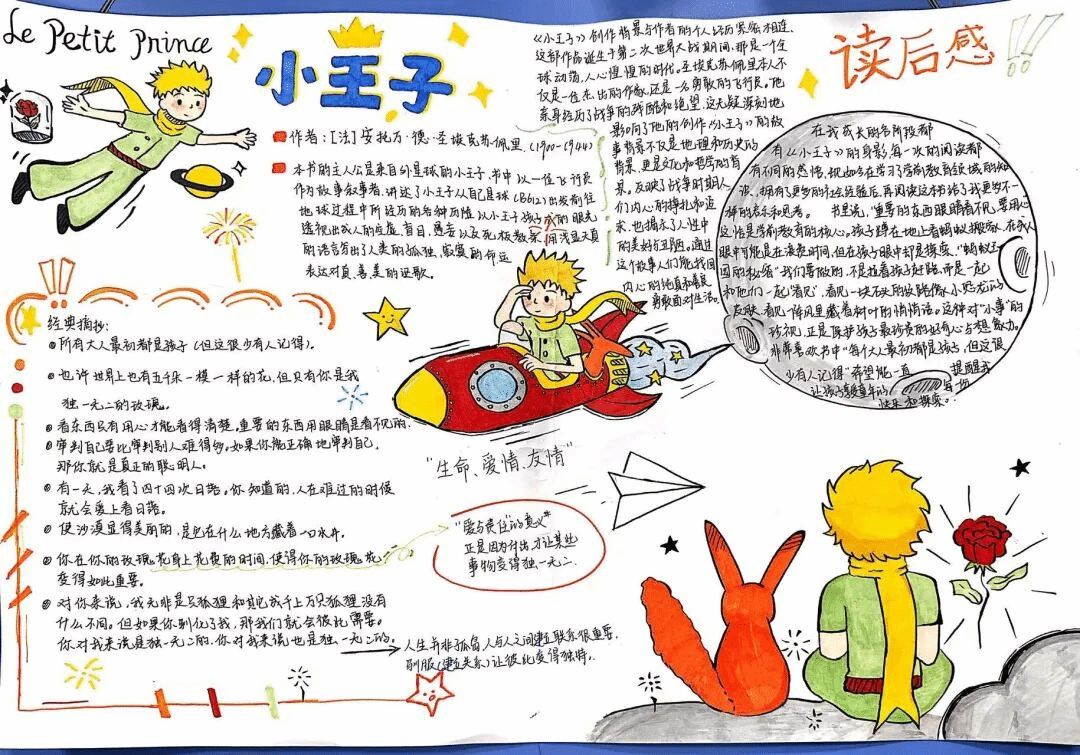 Le Petit Prince
小王子
作者：[法]安托万·德·圣埃克苏佩里（1900-1944）
本书的主人公是来自外星球的小王子，书中以一位飞行员
作为故事叙事者，讲述了小王子从自己星球（B612）出发前往
地球过程中所经历的各种历险，以小王子孩子式的眼光
透视出成人的空虚、盲目、愚妄以及死板教条，用浅显天真
的语言写出了人类的孤独、寂寞的命运
表达对真善美的讴歌。
《小王子》创作背景与作者的个人经历紧密相连，
这部作品诞生于第二次世界大战期间，那是一个全
球动荡，人心惶惶的时代，圣埃克苏佩里本人不
仅是一位杰出的作家，还是一名勇敢的飞行员。他
亲身经历了战争的残酷和绝望，这无疑深刻地
影响了他的创作《小王子》的故
事背景不仅是地理和历史的
背景，更是文化和哲学的背
景，反映了战争时期人
们内心的挣扎和追
求，也揭示了人性中
的美好与丑陋。通过
这个故事人们能找回
内心的纯真和善良
勇敢面对生活。
读后感!!
在我成长的各阶段都
有《小王子》的身影，每一次的阅读都
有不同的感悟，现如今在学习学前教育领域的知
识，拥有了更多的社会经验后，再阅读这本书给了我更多不一
样的启示和思考。 书里说，"重要的东西眼睛看不见，要用心"
这恰是学前教育的核心。孩子蹲在地上看蚂蚁搬家，在我
眼中可能是在浪费时间，但在孩子眼中却是探索"蚂蚁王
国的秘密"我们要做的，不是拉着孩子赶路，而是一起
和他们一起"看见"，看见一块石头的纹路像小恐龙的
皮肤，看见一阵风里藏着树叶的悄悄话。这种对"小事"的
珍视，正是保护孩子最珍贵的好奇心与想象力。
非常喜欢书中"每个大人最初都是孩子，但这很
少有人记得"希望能一直 提醒我
让孩子 童年的 每一份
快乐和探索。
!!
经典摘抄：
所有大人最初都是孩子（但这很少有人记得）。
也许世界上也有五千朵一模一样的花，但只有你是我
独一无二的玫瑰。
看东西只有用心才能看得清楚，重要的东西用眼睛是看不见的。
审判自己要比审判别人难得多。如果你能正确地审判自己，
那你就是真正的聪明人。
有一天，我看了四十四次日落。你知道的，人在难过的时候
就会爱上看日落。
使沙漠显得美丽的，是它在什么地方藏着一口水井。
你在你的玫瑰花身上花费的时间，使得你的玫瑰花
变得如此重要。
对你来说，我无非是只狐狸，和其它成千上万只狐狸没有
什么不同。但如果你驯化了我，那我们就会彼此需要。
你对我来说是独一无二的，你对我来说也是独一无二的。
"生命、爱情、友情"
"爱与责任"的意义"
正是因为付出，才让某些
事物变得独一无二.
人生书非孤岛，人与人之间建立联系很重要，
驯服（建立关系）让彼此变得独特。